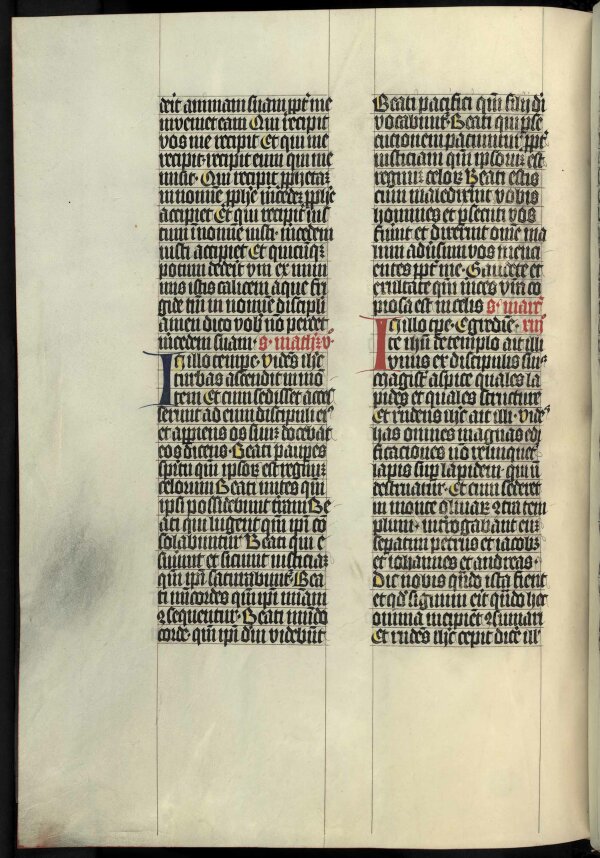 derit animam suam ppt me
inveniet eam Qui recipit
vos me recipit Et qui me
recipit· recipit eum qui me
misit· Qui recipit pphetaz
in nomīe pphe m̄cedez pphe
accipiet Et qui recipit ius
tum ī nomīe iusti· m̄cedem
iusti accipiet Et quicūqz
potum dederit vni ex mini
mis istis calicem aque fri
gide tm̄ in nomīe discipli
amen dico vobis nō perdet
m̄cedem suam· S· math'z v·
In illo tempe· Videns ihc
turbas ascendit in mō
tem Et cum sedisset acces
serunt ad eum discipuli ei9
et apperiens os suuz docebat
eos dicens· Beati paupes
spiritu qm̄ ipsoz est regnuz
celorum Beati mites qm̄
ipsi possidebunt terram Be
ati qui lugent qm̄ ipi cō
solabuntur Beati qui e
suriunt et siciunt iusticiaz
qm̄ ipi saturabuntur Bea
ti mi'cordes qm̄ ipi mi'am
9sequentur· Beati mundo
corde· qm̄ ipi dm̄ videbunt
Beati pacifici qm̄ filij di
vocabuntur Beati qui pse
cucionem paciuntur ppt'
iusticiam qm̄ ipsoruz est
regnuz celoz Beati estis
cum maledixerint vobis
homines et psecuti vos
fuerint et dixerint om̄e ma
lum aduersum vos menci
entes ppt' me· Gaudete et
exultate qm̄ m'ces vr̄a co
piosa est in celis S· marc'
In illo tpe· Egredien· xiij
te ihū de templo ait illi
vnus ex discipulis suis
Magister aspice quales la
pides et quales structure
Et rñdens ihc ait illi· Vides
has omnes magnas edi
ficaciones nō relinquet'
lapis sup lapidem qui nō
destruatur· Et cum sederet
in monte oliuaz 9tra tem
plum· int'rogabant euz
sepatim petrus et iacobz
et iohannes et andreas·
Dic nobis qn̄do ista fient
et qd' signum erit qn̄do hec
omnia incipient 9sumari
Et rñdens ihc cepit dicere ill'